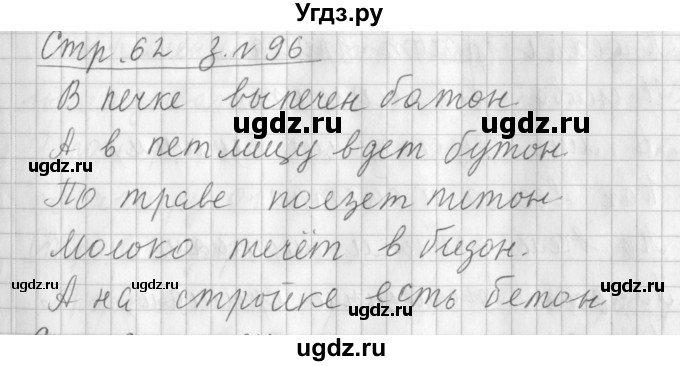 Угдз.ру
Стр. 62 З. № 96
В печке выпечен батон
А в петлицу вдет бутон
По траве ползет питон
Молоко течёт в бидон.
А на стройке есть бетон
ugdz.ru
ugdz.ru
ugdz.ru
ugdz.ru
ugdz.ru
ugdz.ru
ugdz.ru
ugdz.ru
ugdz.ru
ugdz.ru
ugdz.ru